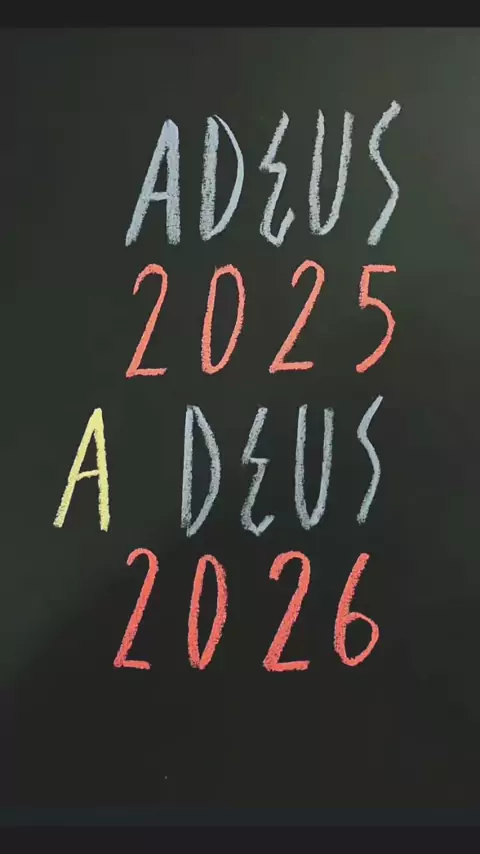 ADEUS
2025
A DEUS
2026